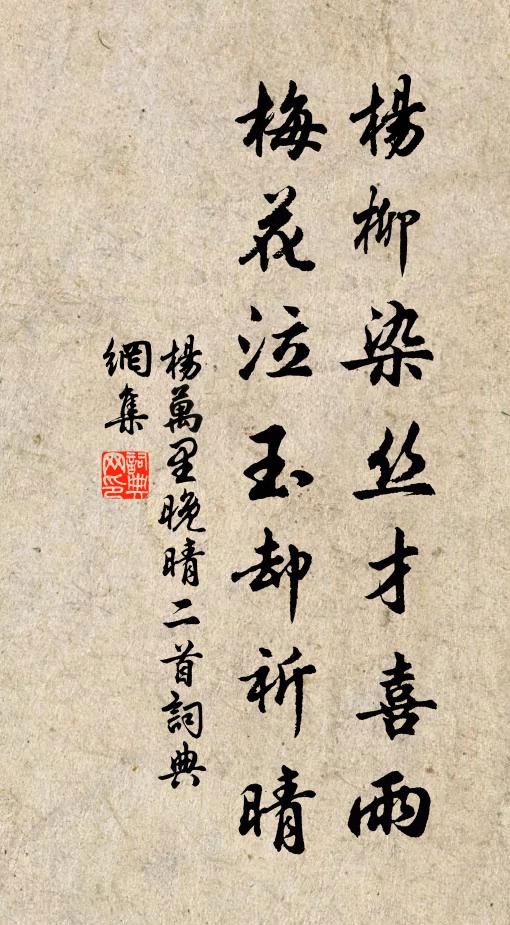 楊柳染丝才喜雨
梅花泣玉却祈晴
楊萬里晚晴二首詞典
網集
詞典網印